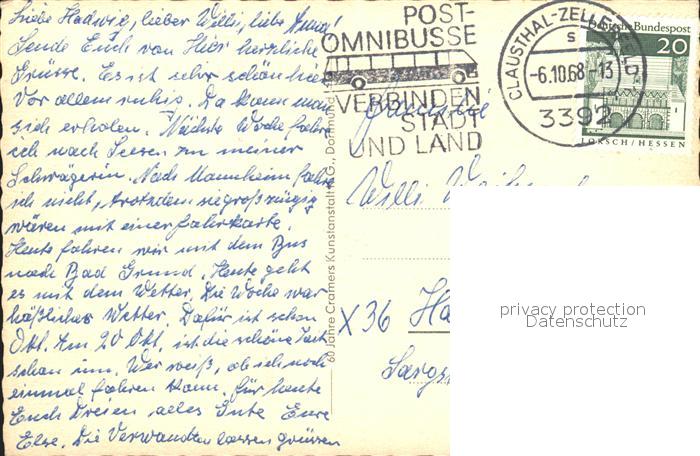 Liebe Hedwig, lieber Willi, liebe Anna!
Sende Euch von Hier herzliche
Grüsse. Es ist sehr schön hier
Vor allem ruhig. Da kann man
sich erholen. Nächste Woche fahre
ich nach Seesen zu meiner
Schwägerin. Nach Mannheim fahre
ich nicht, trotzdem sie großzügig
wären mit einer Fahrkarte.
Heute fahren wir mit dem Bus
nach Bad Grund. Heute geht
es mit dem Wetter. Die Woche war
häßliches Wetter. Dafür ist schon
Okt. Am 20 Okt. ist die schöne Zeit
schon um. Wer weiß, ob ich noch
einmal fahren kann. Für heute
Euch Dreien alles Gute Eure
Else. Die Verwandten lassen grüssen
60 Jahre Cramers Kunstanstalt KG., Dortmund
POST-
OMNIBUSSE
VERBINDEN
STADT
UND LAND
CLAUSTHAL-ZELLERF
s
-6.10.68-13
3392
Deutsche Bundespost
20
LORSCH/HESSEN
Familie
Willi
X36 Ha
Sargs
privacy protection
Datenschutz